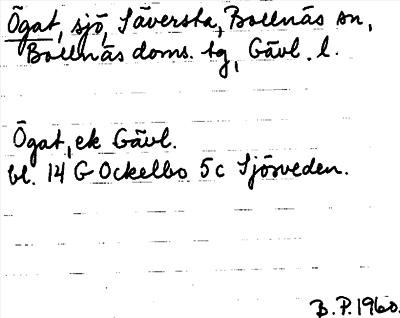 Ögat, sjö, Säversta, Bollnäs sn,
Bollnäs doms. tg, Gävl. l.
Ögat, ek Gävl.
bl. 14 G Ockelbo 5c Sjösveden.
B.P.1960.